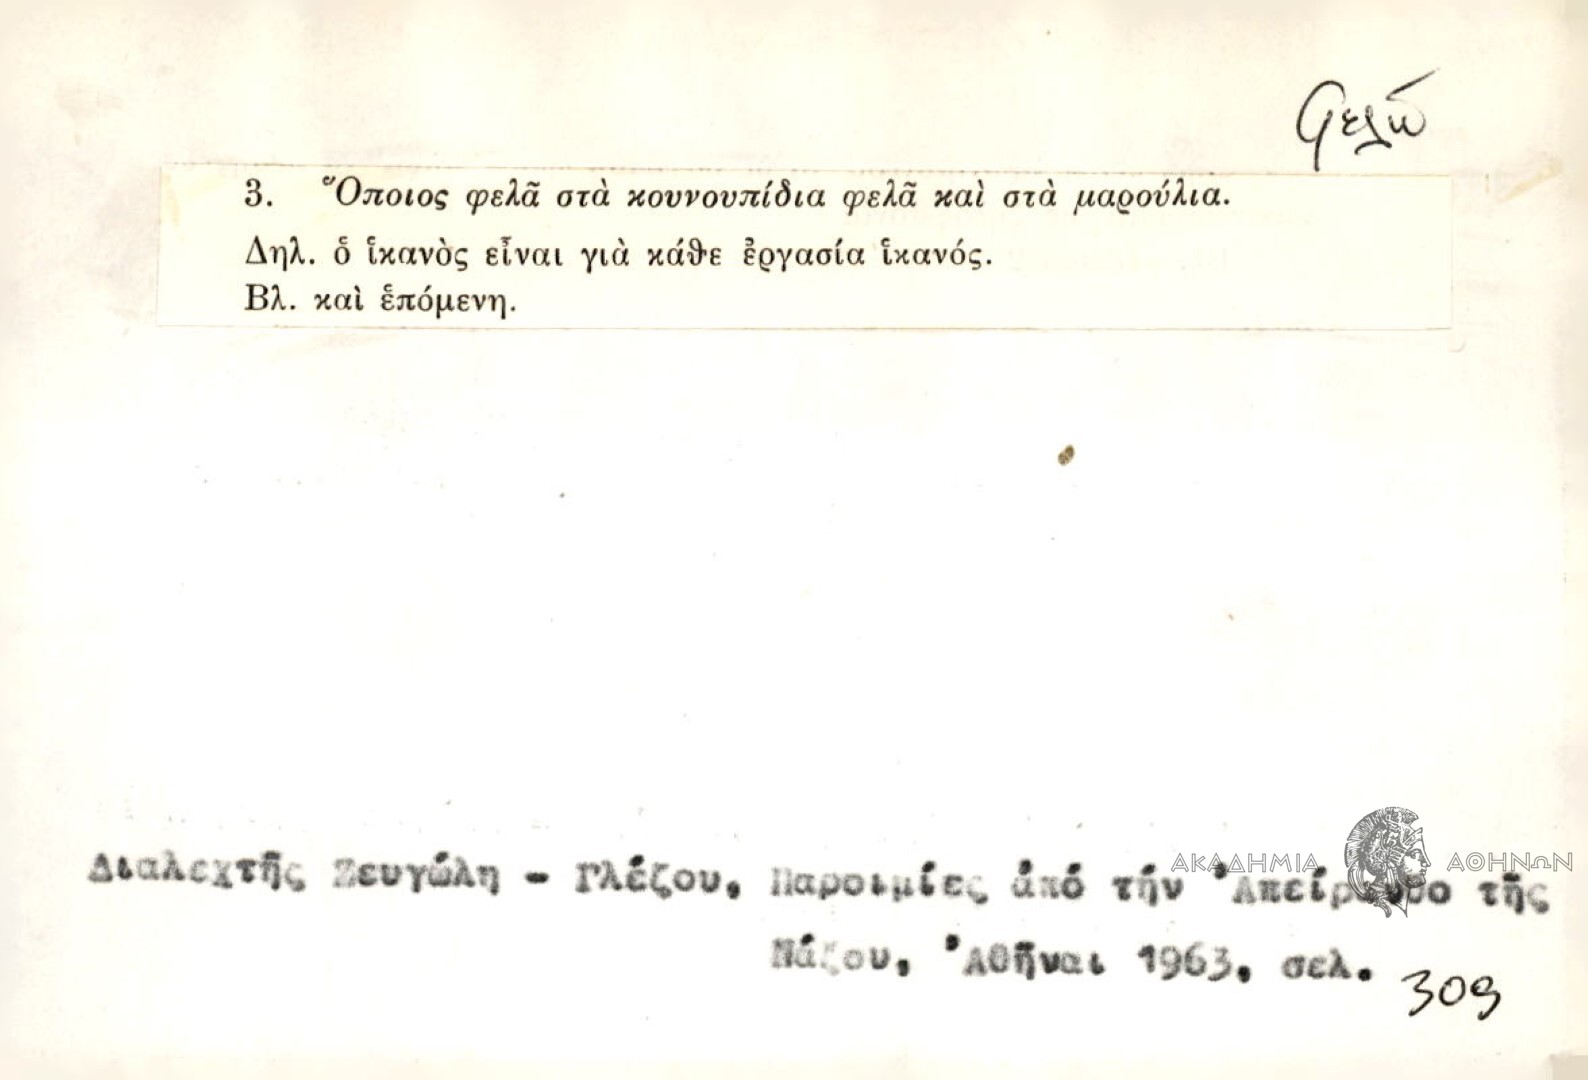 φελῶ
3. Ὅποιος φελᾶ στὰ κουνουπίδια φελᾶ καὶ στὰ μαρούλια.
Δηλ. ὁ ἱκανὸς εἶναι γιὰ κάθε ἐργασία ἱκανός.
Βλ. καὶ ἑπόμενη.
ΑΚΑΔΗΜΙΑ ΑΘΗΝΩΝ
Διαλεχτῆς Ζευγώλη - Γλέζου, Παροιμίες ἀπό τήν Ἀπείραθο τῆς
Νάξου, Ἀθῆναι 1963, σελ. 309